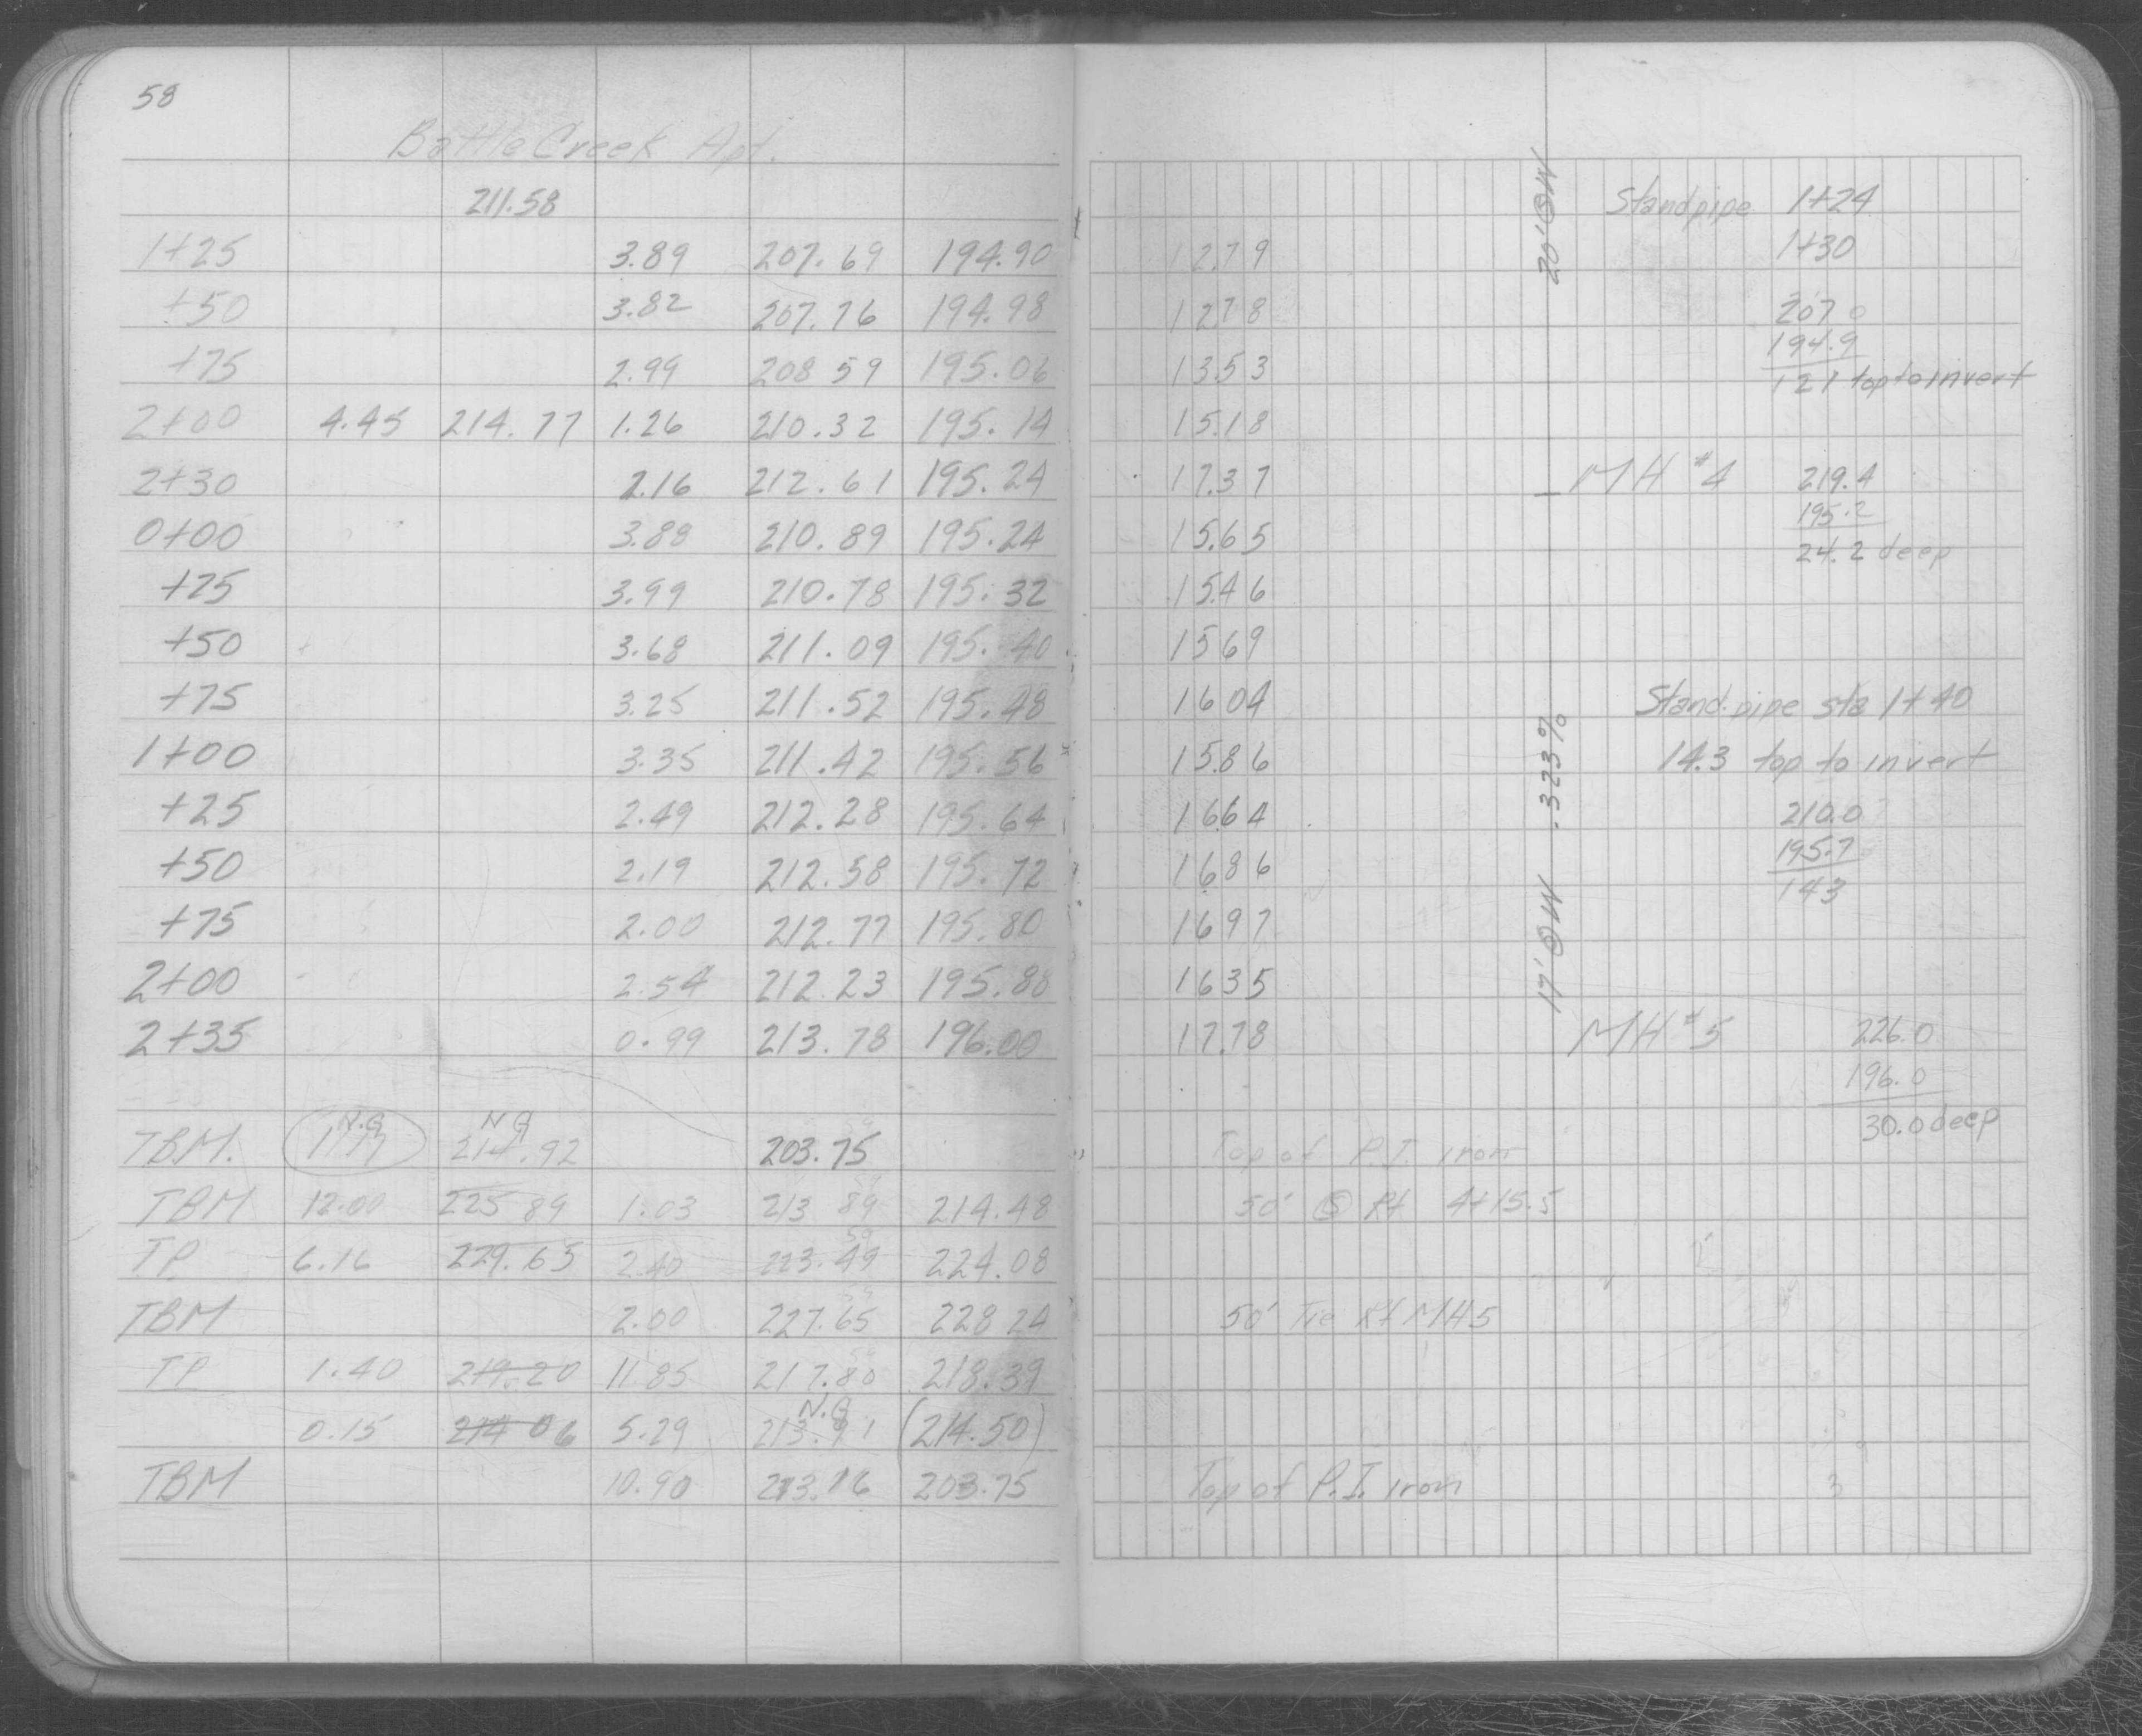 58
Battle Creek Apt.
211.58
1+25 3.89 207.69 194.90
+50 3.82 207.76 194.98
+75 2.99 208 59 195.06
2+00 4.45 214.77 1.26 210.32 195.14
2+30 2.16 212.61 195.24
0+00 3.88 210.89 195.24
+25 3.99 210.78 195.32
+50 3.68 211.09 195.40
+75 3.25 211.52 195.48
1+00 3.35 211.42 195.56
+25 2.49 212.28 195.64
+50 2.19 212.58 195.72
+75 2.00 212.77 195.80
2+00 2.54 212.23 195.88
2+35 0.99 213.78 196.00
N.G N G
TBM. 214.92 203.75
TBM 12.00 225 89 1.03 213 89 214.48
TP 6.16 229.65 2.40 223.49 224.08
TBM 2.00 227.65 228 24
TP 1.40 219.20 11.85 217.80 218.39
N.G
0.15 214 06 5.29 213.91 (214.50)
TBM 10.90 203.75
Standpipe 1+24
1+30
12.79
1278 207.0
194.9
1353 121 top to invert
20' @ W
1518
1737 MH #4 219.4
195.2
15.65 24.2 deep
1546
1569
1604 Stand.pipe sta 1+40
1586 14.3 top to invert
1664 210.0
195.7
1686 143
1697
1635
17' @ W .323%
17.78 MH #5 226.0
196.0
30.0 deep
Top of P.I. iron
50' @ Rt 4+15.5
50' Tie Rt MH5
Top of P.I. iron